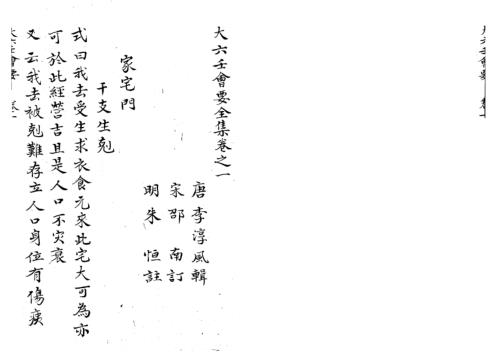 大六壬會要全集卷之一
唐 李淳風輯
宋 邵 南訂
明 朱 恒註
家宅門
干支生剋
式曰我去受生求衣食元來此宅大可為亦
可於此經營吉且是人口不灾衰
又云我去被剋難存立人口身位有傷疾
大六壬會要 卷一